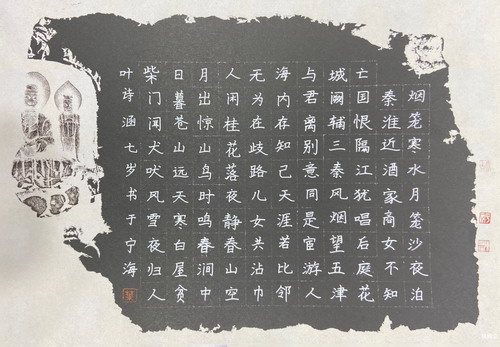 烟笼寒水月笼沙夜泊
秦淮近酒家商女不知
亡国恨隔江犹唱后庭花
城阙辅三秦风烟望五津
与君离别意同是宦游人
海内存知己天涯若比邻
无为在歧路儿女共沾巾
人闲桂花落夜静春山空
月出惊山鸟时鸣春涧中
日暮苍山远天寒白屋贫
柴门闻犬吠风雪夜归人
叶诗涵七岁书于宁海